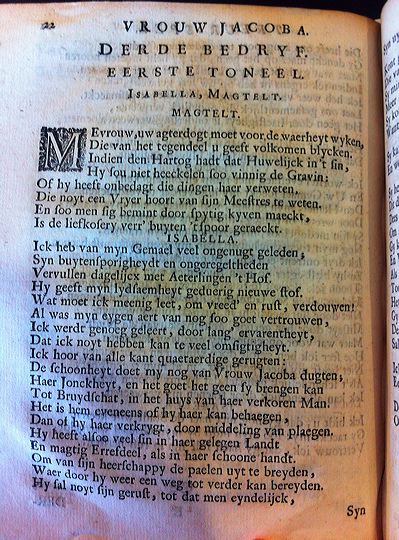 22 VROUW JACOBA.
DERDE BEDRYF.
EERSTE TONEEL.
ISABELLA, MAGTELT.
MAGTELT.
MEvrouw, uw agterdogt moet voor de waerheyt wyken,
Die van het tegendeel u geeft volkomen blycken.
Indien den Hartog hadt dat Huwelijck in 't sin,
Hy sou niet heeckelen soo vinnig de Gravin;
Of hy heeft onbedagt die dingen haer verweten.
Die noyt een Vryer hoort van sijn Meestres te weten.
En soo men sig bemint door spytig kyven maeckt,
Is de liefkosery verr' buyten 't spoor geraeckt.
ISABELLA.
Ick heb van myn Gemael veel ongenugt geleden;
Syn buytensporigheydt en ongeregeltheden
Vervullen dagelijcx met Aeterlingen 't Hof.
Hy geeft mijn lydsaemheyt geduerig nieuwe stof.
Wat moet ick meenig leet, om vreed' en rust, verdouwen!
Al was myn eygen aert van nog soo goet vertrouwen,
Ick werdt genoeg geleert, door lang' ervarentheyt,
Dat ick noyt hebben kan te veel omsigtigheyt.
Ick hoor van alle kant quaetaerdige gerugten:
De schoonheyt doet my nog van Vrouw Jacoba dugten;
Haer Jonckheyt, en het goet het geen sy brengen kan
Tot Bruydschat, in het huys van haer verkoren Man.
Het is hem eveneens of hy haer kan behaegen,
Dan of hy haer verkrygt, door middeling van plaegen.
Hy heeft alsoo veel sin in haer gelegen Landt
En magtig Erfsdeel, als in haer schoone handt.
Om van sijn heerschappy de paelen uyt te breyden,
Waer door hy weer een weg tot verder kan bereyden.
Hy sal noyt sijn gerust, tot dat men eyndelijck,
Syn